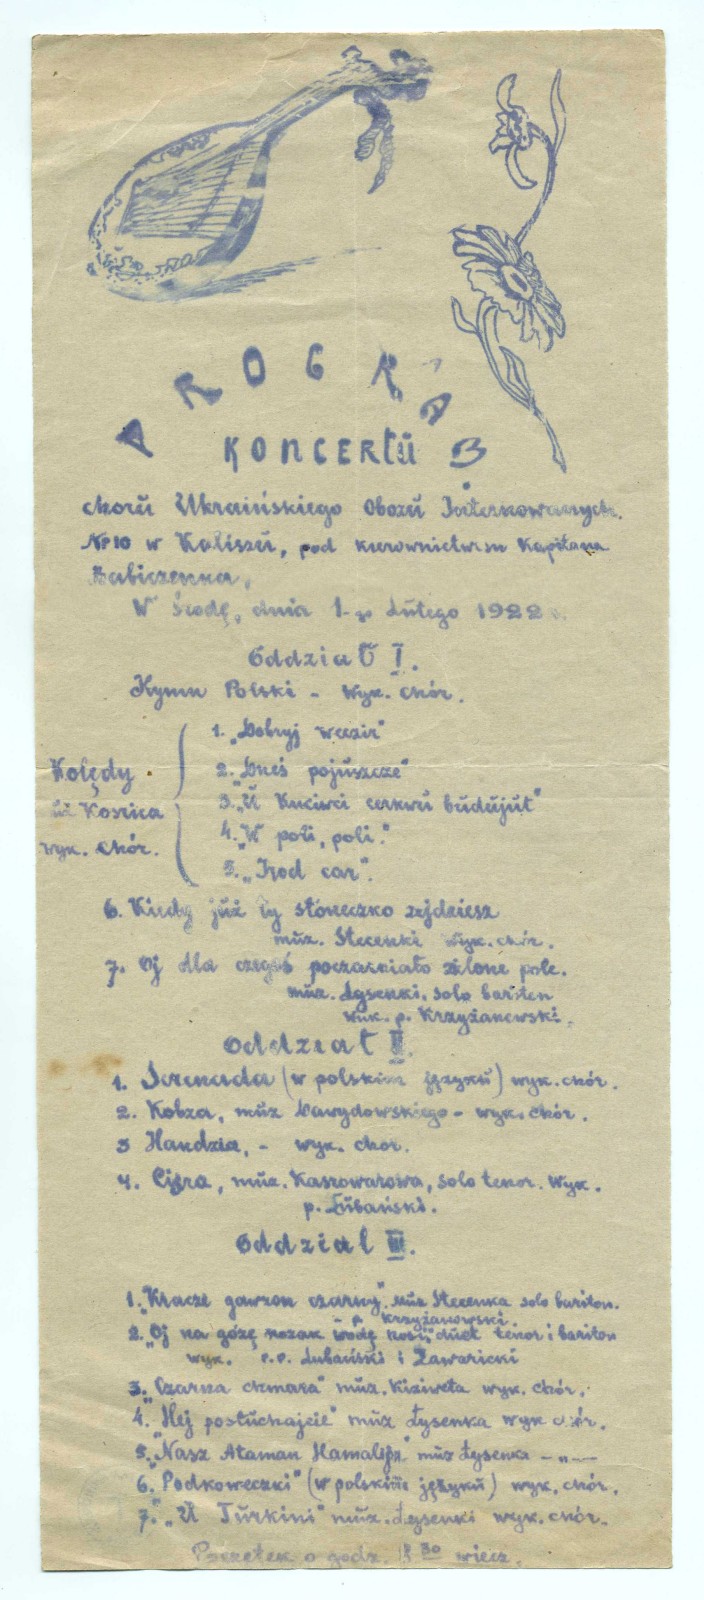 PROGRAM
KONCERTU
choru Ukraińskiego Obozu Internowanych.
№ 10 w Kaliszu, pod kierownictwem Kapitana
Babiczenka,
W środę, dnia 1-go Lutego 1922
Oddział I.
Hymn Polski - wyk. chór.
1. „Dobryj weczir"
Kolędy
2. „Dneś pojuszcze"
Koszica
3. „U Kuciwci cerkwu budujut"
wyk. Chór.
4. „W poli, poli."
5. „Irod car".
6. Kiedy już ty słoneczko zejdziesz
muz. Stecenki wyk. chór.
7. Oj dla czegoś poczarniało zielone pole.
muz. Łysenki. solo bariton
wyk. p. Krzyżanowski.
Oddział II.
1. Serenada (w polskim języku) wyk. chór.
2. Kobza, muz Dawydowskiego - wyk. chór.
3 Handzia, - wyk. chor.
4. Cisra, muz. Kaszowarowa, solo tenor. Wyk.
p. Lubański.
Oddział III.
1. „Kracze gawron czarny" muz Stecenka solo bariton.
- p Krzyżanowski.
2. „Oj na górę kozak wodę nosił" duet tenor i bariton
wyk. p.p. Lubański i Zawaricki
3. „Czarna chmara" muz. Kiziweta wyk. chór.
4. „Hej posłuchajcie" muz Łysenka wyk chór.
5. „Nasz Ataman Hamalija" muz Łysenka - „ -
6. Podkoweczki" (w polskim języku) wyk. chór.
7. „U Turkini" muz. Łysenki wyk. chór.
Początek o godz. 30 wiecz.